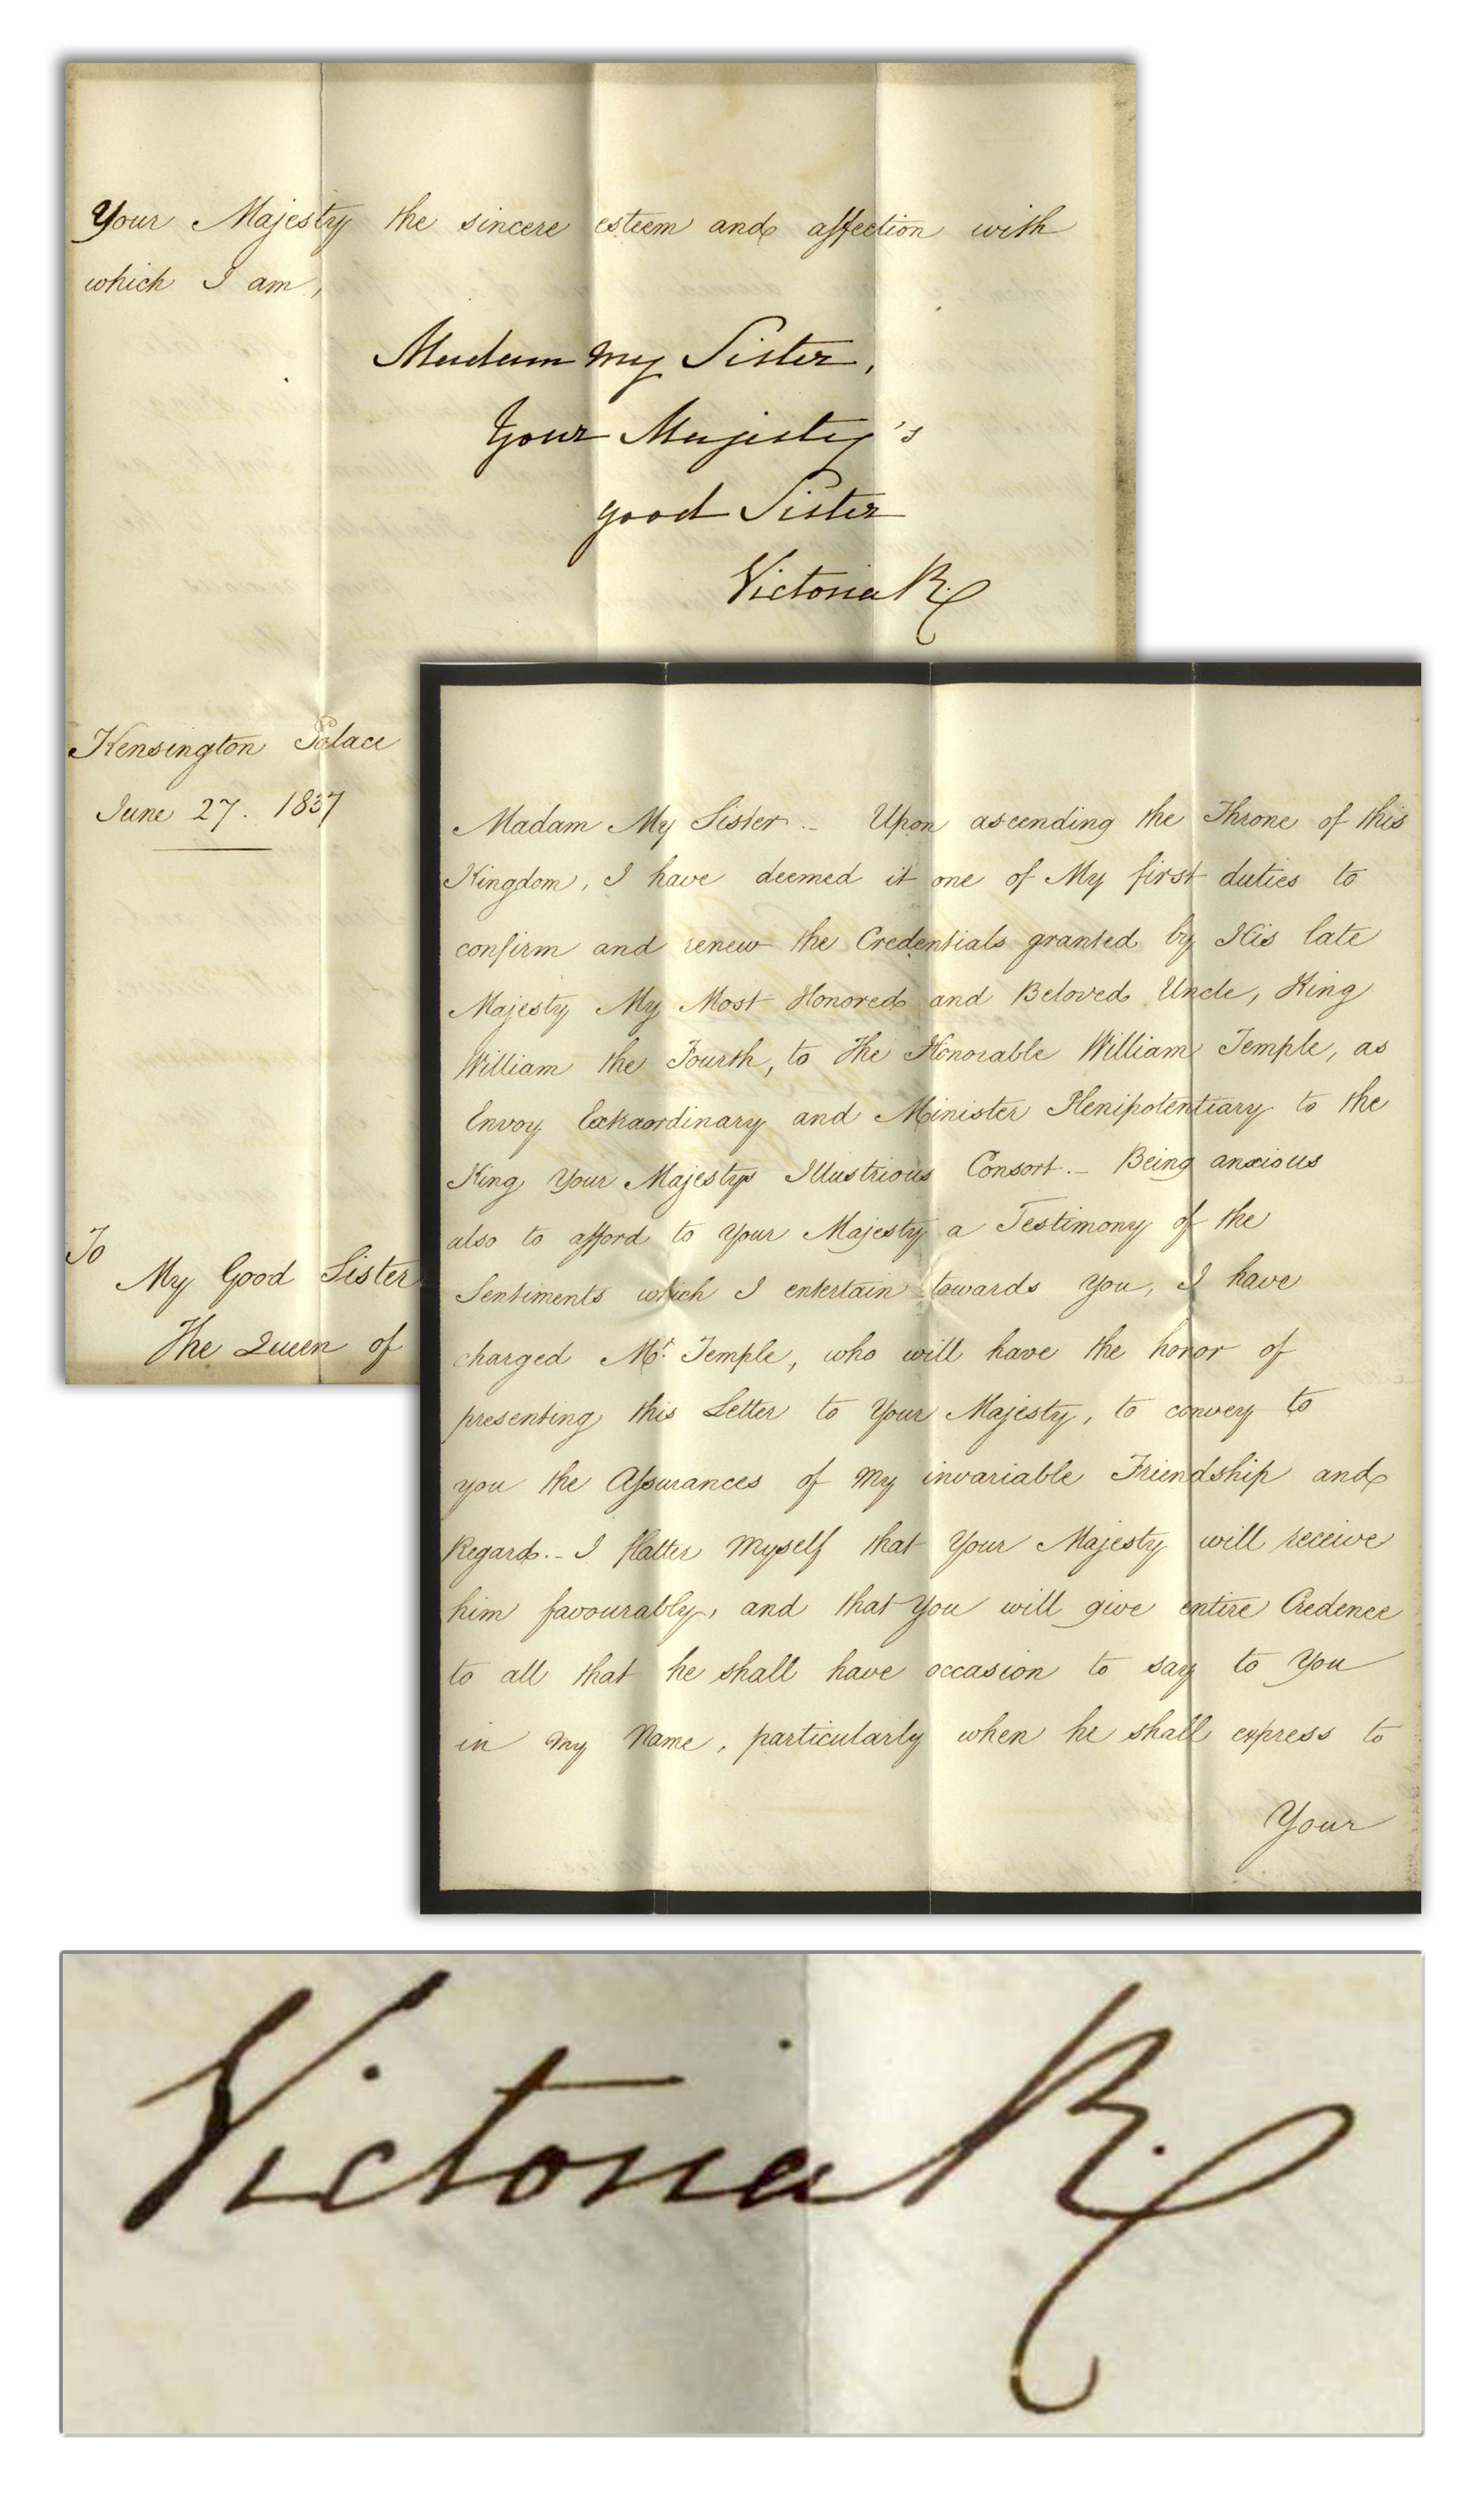 Your Majesty the sincere esteem and affection with
which I am,
Madam my Sister,
Your Majesty's
good Sister
Victoria R.
Kensington Palace
June 27. 1837
To
My Good Sister
The Queen of
Madam My Sister.- Upon ascending the Throne of this
Kingdom, I have deemed it one of My first duties to
confirm and renew the Credentials granted by His late
Majesty My Most Honored and Beloved Uncle, King
William the Fourth, to The Honorable William Temple, as
Envoy Extraordinary and Minister Plenipotentiary to the
King Your Majestys Illustrious Consort.- Being anxious
also to afford to Your Majesty a Testimony of the
Sentiments which I entertain towards You, I have
charged Mr. Temple, who will have the honor of
presenting this Letter to Your Majesty, to convey to
you the Assurances of my invariable Friendship and
Regard.- I flatter Myself that Your Majesty will receive
him favourably, and that You will give entire Credence
to all that he shall have occasion to say to You
in my Name, particularly when he shall express to
Your
Victoria R.